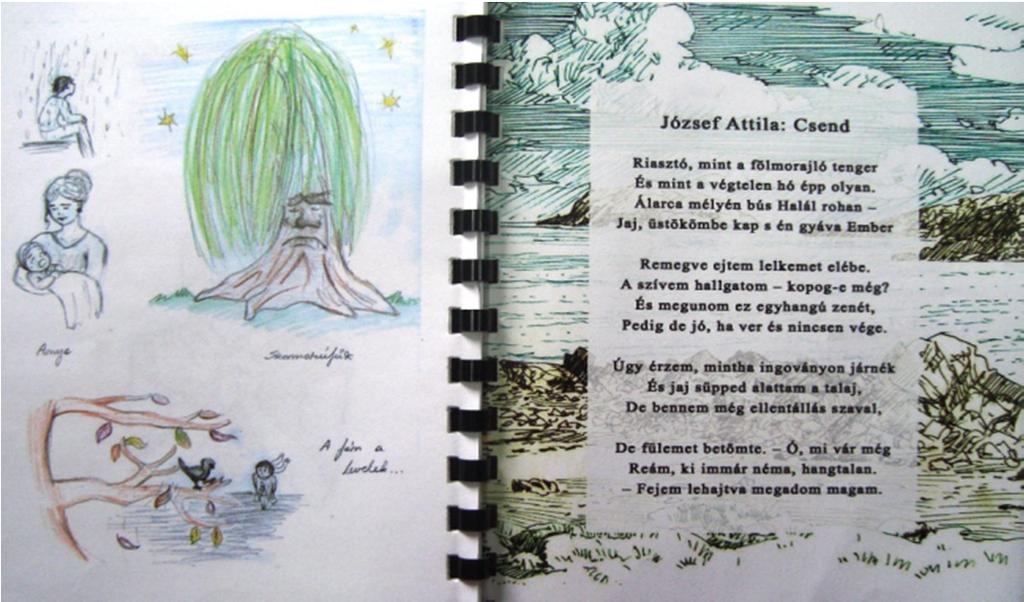 Anya
Szomorúfűz
A fán a
levelek...
József Attila: Csend
Riasztó, mint a fölmorajló tenger
És mint a végtelen hó épp olyan.
Álarca mélyén bús Halál rohan –
Jaj, üstökömbe kap s én gyáva Ember
Remegve ejtem lelkemet elébe.
A szívem hallgatom – kopog-e még?
És megunom ez egyhangú zenét,
Pedig de jó, ha ver és nincsen vége.
Úgy érzem, mintha ingoványon járnék
És jaj süpped alattam a talaj,
De bennem még ellentállás szaval,
De fülemet betömte. – Ó, mi vár még
Reám, ki immár néma, hangtalan.
– Fejem lehajtva megadom magam.